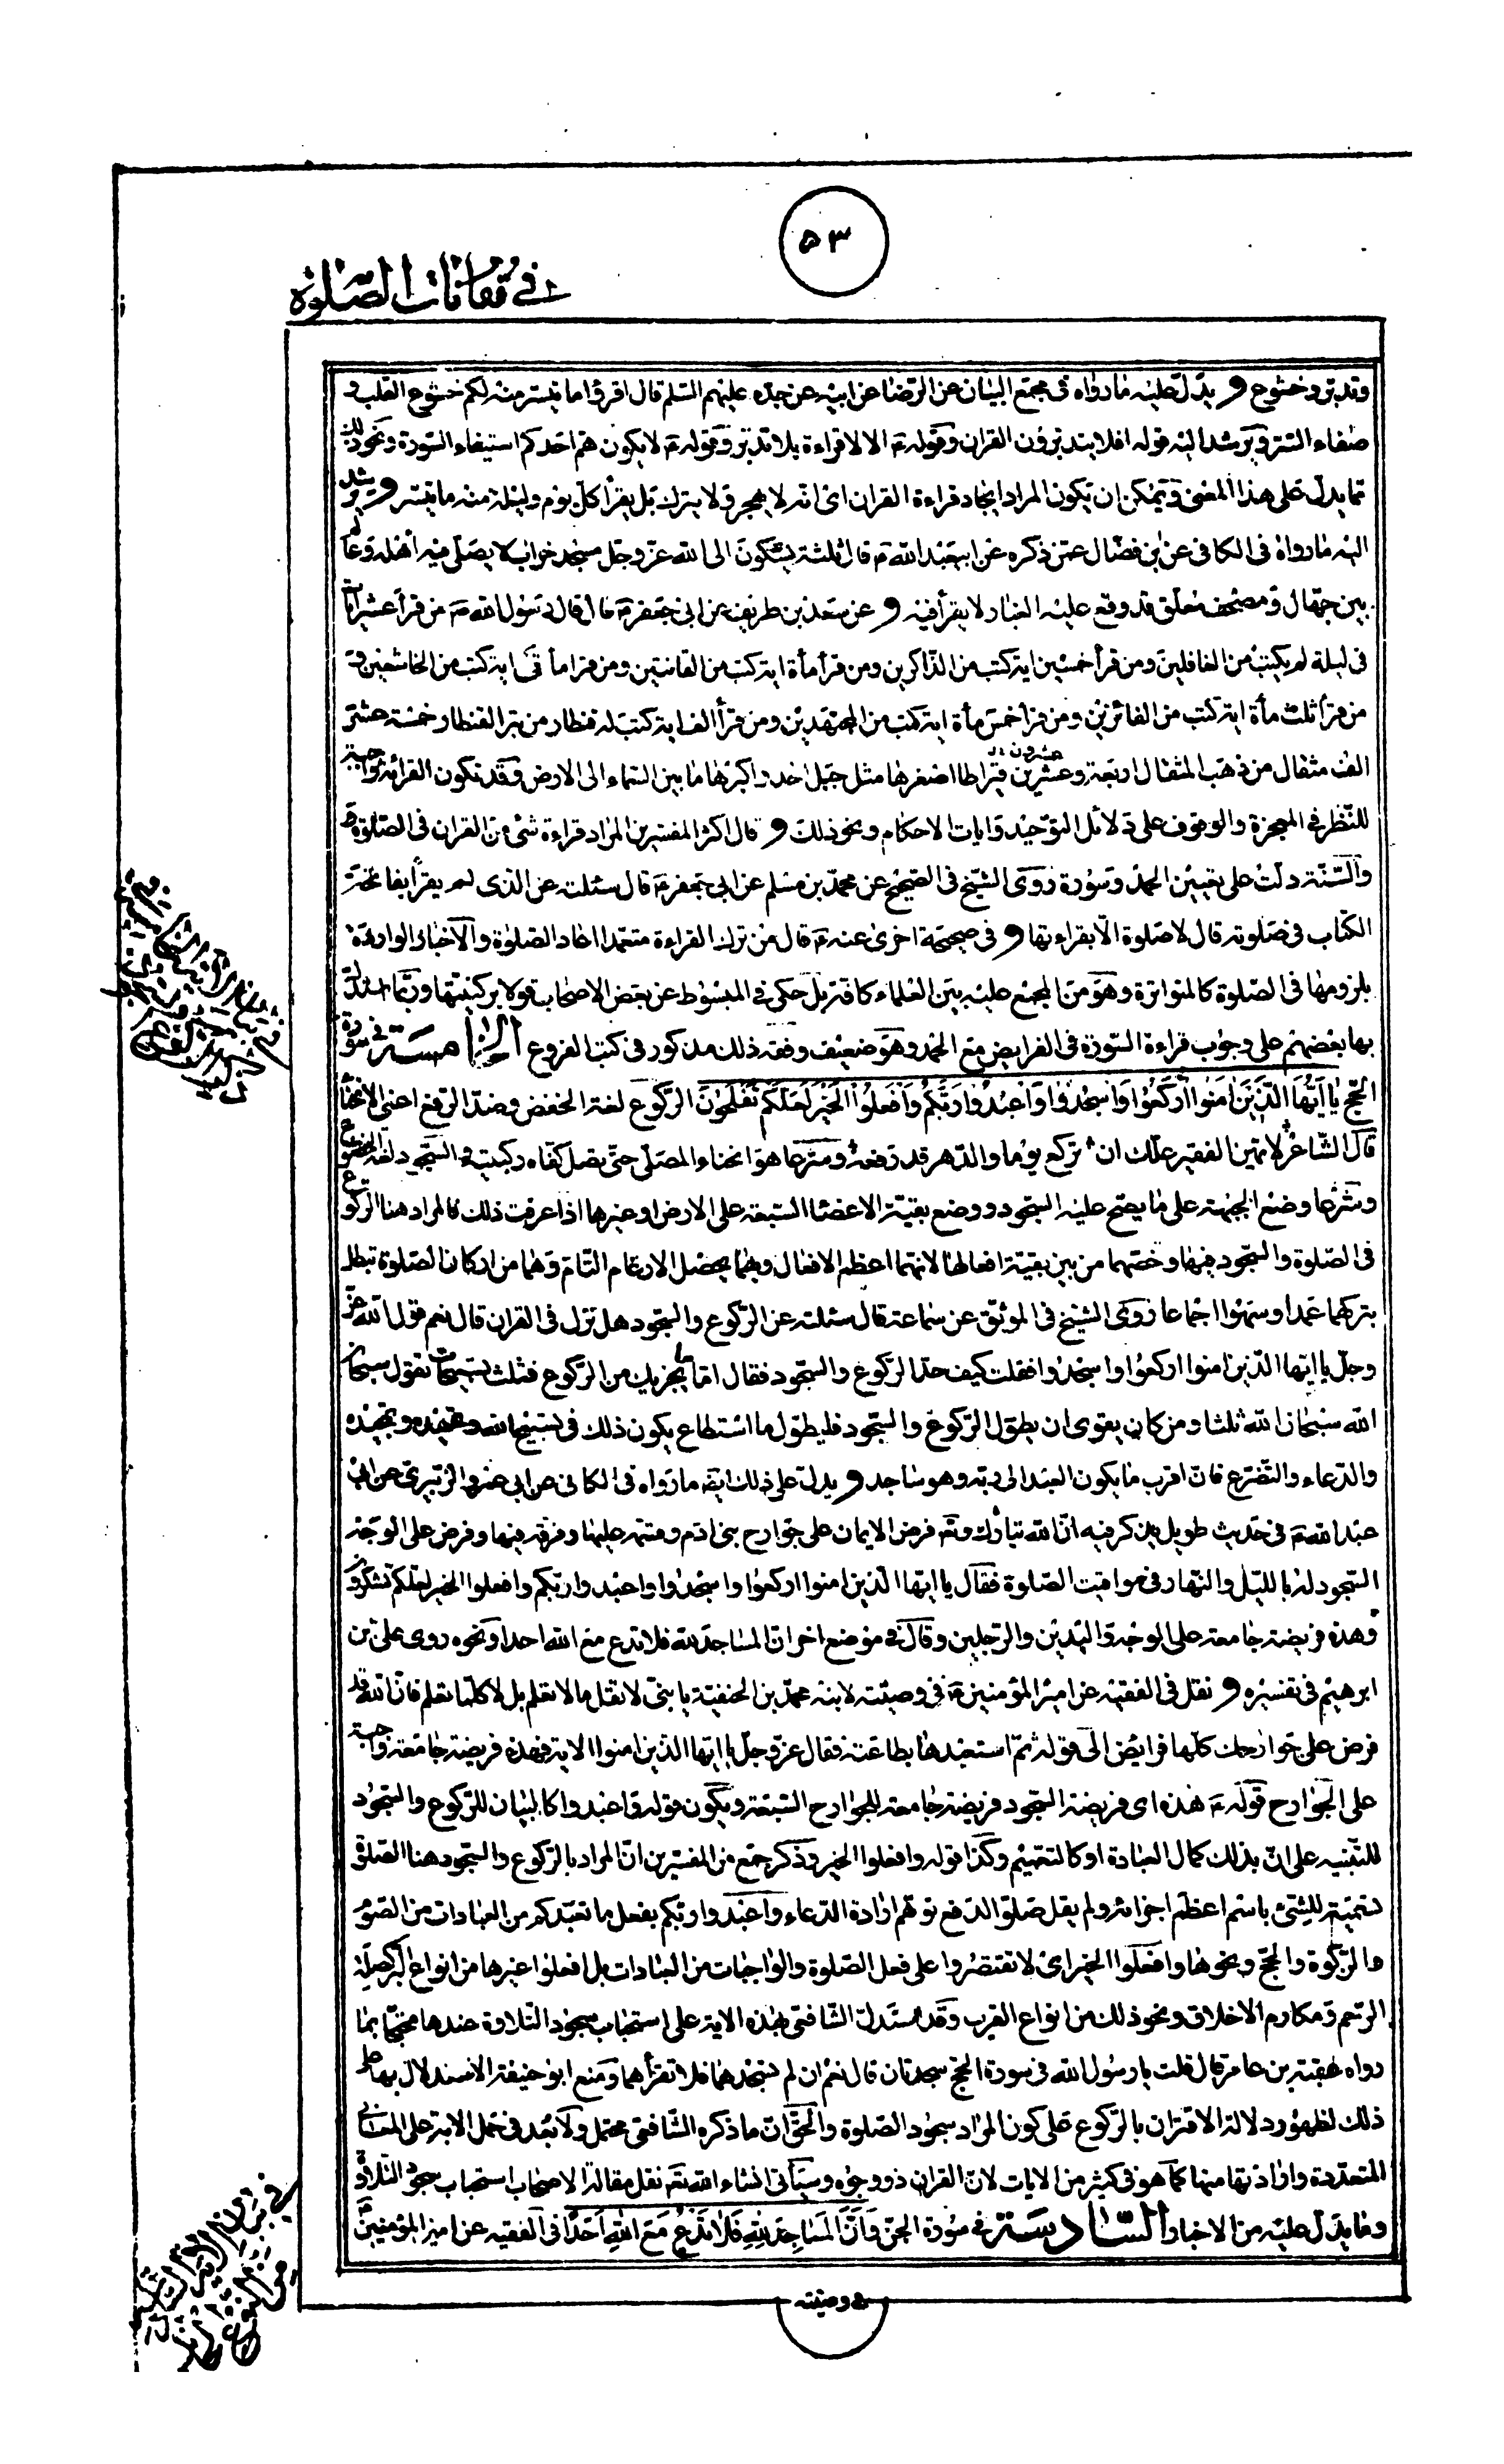 ٥٣
في مقارنات الصلوة
وتدبر وخشوع و يدل عليه ما رواه فى مجمع البيان عن الرضا عن ابيه عن جده عليهم السلم قال اقرؤا ما تيسر منه لكم خشوع القلب و
صفاء السر ويرشد اليه قوله افلا يتدبرون القران وقوله ع الا لا قراءة بلا تدبر وقوله ع لا يكون هم احدكم استيفاء السورة ونحو ذلك
مما يدل على هذا المعنى ويمكن ان يكون المراد ايجاد قراءة القران اى انه لا يهجر ولا يترك بل يقرأ كل يوم وليلة منه ما تيسر و يرشد
اليه ما رواه فى الكافى عن بن فضال عمن ذكره عن ابيعبد الله ع قال ثلثة يشكون الى الله عز وجل مسجد خراب لا يصلى فيه اهله وعالم
بين جهال ومصحف معلق قد وقع عليه الغبار لا يقرأ فيه و عن سعد بن طريف عن ابى جعفر ع قال قال رسول الله ص من قرأ عشر ايات
فى ليلة لم يكتب من الغافلين ومن قرأ خمسين اية كتب من الذاكرين ومن قرأ مأة اية كتب من القانتين ومن قرا مأتى اية كتب من الخاشعين و
من قرأ ثلث مأة اية كتب من الفائزين ومن قرأ خمس مأة اية كتب من المجتهدين ومن قرأ الف اية كتب له قنطار من بر القنطار خمسة عشر
الف مثقال من ذهب المثقال اربعة وعشرين قيراطا اصغرها مثل جبل احد واكبرها ما بين السماء الى الارض وقد تكون القراءة واجبة
للنظر في المعجزة والوقوف على دلائل التوحيد وايات الاحكام ونحو ذلك و قال اكثر المفسرين المراد قراءة شئ من القران فى الصلوة
والسنة دلت على تعيين الحمد وسورة روى الشيخ فى الصحيح عن محمد بن مسلم عن ابى جعفر ع قال سئلته عن الذى لم يقرأ بفاتحة
الكتاب فى صلوته قال لا صلوة الا بقراءتها و فى صحيحة اخرى عنه ع قال من ترك القراءة متعمدا اعاد الصلوة والاخبار الواردة
بلزومها فى الصلوة كالمتواترة وهو من المجمع عليه بين العلماء كافة بل حكى في المبسوط عن بعض الاصحاب قولا بركنيتها وربما استدل
بها بعضهم على وجوب قراءة السورة فى الفرايض مع الحمد وهو ضعيف وفقه ذلك مذكور فى كتب الفروع الخامسة في سورة
الحج يا ايها الذين امنوا اركعوا واسجدوا واعبدوا ربكم وافعلوا الخير لعلكم تفلحون الركوع لغة الخفض وضد الرفع اعنى الانحناء
قال الشاعر لا تهين الفقير علك ان تركع يوما والدهر قد رفعه وشرعا هو انحناء المصلى حتى يصل كفاه ركبتيه السجود لغة الخضوع
وشرعا وضع الجبهة على ما يصح عليه السجود ووضع بقية الاعضا السبعة على الارض او غيرها اذا عرفت ذلك فالمراد هنا الركوع
فى الصلوة والسجود فيها وخصهما من بين بقية افعالها لانهما اعظم الافعال وبهما يحصل الارغام التام وهما من اركان الصلوة تبطل
بتركهما عمدا وسهوا اجماعا روى الشيخ فى الموثق عن سماعة قال سئلته عن الركوع والسجود هل نزل فى القران قال نعم قول الله عز
وجل يا ايها الذين امنوا اركعوا واسجدوا فقلت كيف حد الركوع والسجود فقال اما ما يجزيك من الركوع فثلث تسبيحات تقول سبحان
الله سبحان الله ثلثا ومن كان يقوى ان يطول الركوع والسجود فليطول ما استطاع يكون ذلك فى تسبيح الله وتحميده وتمجيده
والدعاء والتضرع فان اقرب ما يكون العبد الى ربه وهو ساجد و يدل على ذلك ايضه ما رواه فى الكافى عن ابى عمرو الزبيرى عن ابى
عبد الله ع فى حديث طويل يذكر فيه ان الله تبارك وتعه فرض الايمان على جوارح بنى ادم وقسمه عليها وفرقه فيها وفرض على الوجه
السجود له بالليل والنهار فى مواقيت الصلوة فقال يا ايها الذين امنوا اركعوا واسجدوا واعبدوا ربكم وافعلوا الخير لعلكم تشكرون
وهذه فريضة جامعة على الوجه واليدين والرجلين وقال في موضع اخر ان المساجد لله فلا تدع مع الله احدا ونحوه روى على بن
ابرهيم فى تفسيره و نقل فى الفقيه عن امير المؤمنين ع فى وصيته لابنه محمد بن الحنفية يا بنى لا تقل ما لا تعلم بل لا كلما تعلم فان الله قد
فرض على جوارحك كلها فرايض الى قوله ثم استعبدها بطاعته فقال عز وجل يا ايها الذين امنوا الاية فهذه فريضة جامعة واجبة
على الجوارح قوله ع هذه اى فريضة السجود فريضة جامعة للجوارح السبعة ويكون قوله واعبدوا كالبيان للركوع والسجود
للتنبيه على ان بذلك كمال العبادة او كالتعميم وكذا قوله وافعلوا الخير وذكر جمع من المفسرين ان المراد بالركوع والسجود هنا الصلوة
تسمية للشئ باسم اعظم اجزائه ولم يقل صلوا لدفع توهم ارادة الدعاء واعبدوا ربكم بفعل ما تعبدكم من العبادات من الصوم
والزكوة والحج ونحوها وافعلوا الخير اى لا تقتصروا على فعل الصلوة والواجبات من العبادات بل افعلوا غيرها من انواع البر كصلة
الرحم ومكارم الاخلاق ونحو ذلك من انواع القرب وقد استدل الشافعى بهذه الاية على استحباب سجود التلاوة عندها محتجا بما
رواه عقبة بن عامر قال قلت يا رسول الله فى سورة الحج سجدتان قال نعم ان لم تسجدهما فلا تقرأهما ومنع ابو حنيفة الاستدلال بها على
ذلك لظهور دلالة الاقتران بالركوع على كون المراد سجود الصلوة والحق ان ما ذكره الشافعى محتمل ولا بعد فى حمل الاية على المعانى
المتعددة وارادتها منها كما هو فى كثير من الايات لان القران ذو وجوه وسيأتى انشاء الله تعه نقل مقالة الاصحاب استحباب سجود التلاوة
وما يدل عليه من الاخبار السادسة في سورة الجن وان المساجد لله فلا تدع مع الله احدا فى الفقيه عن امير المؤمنين ع
فى وصيته